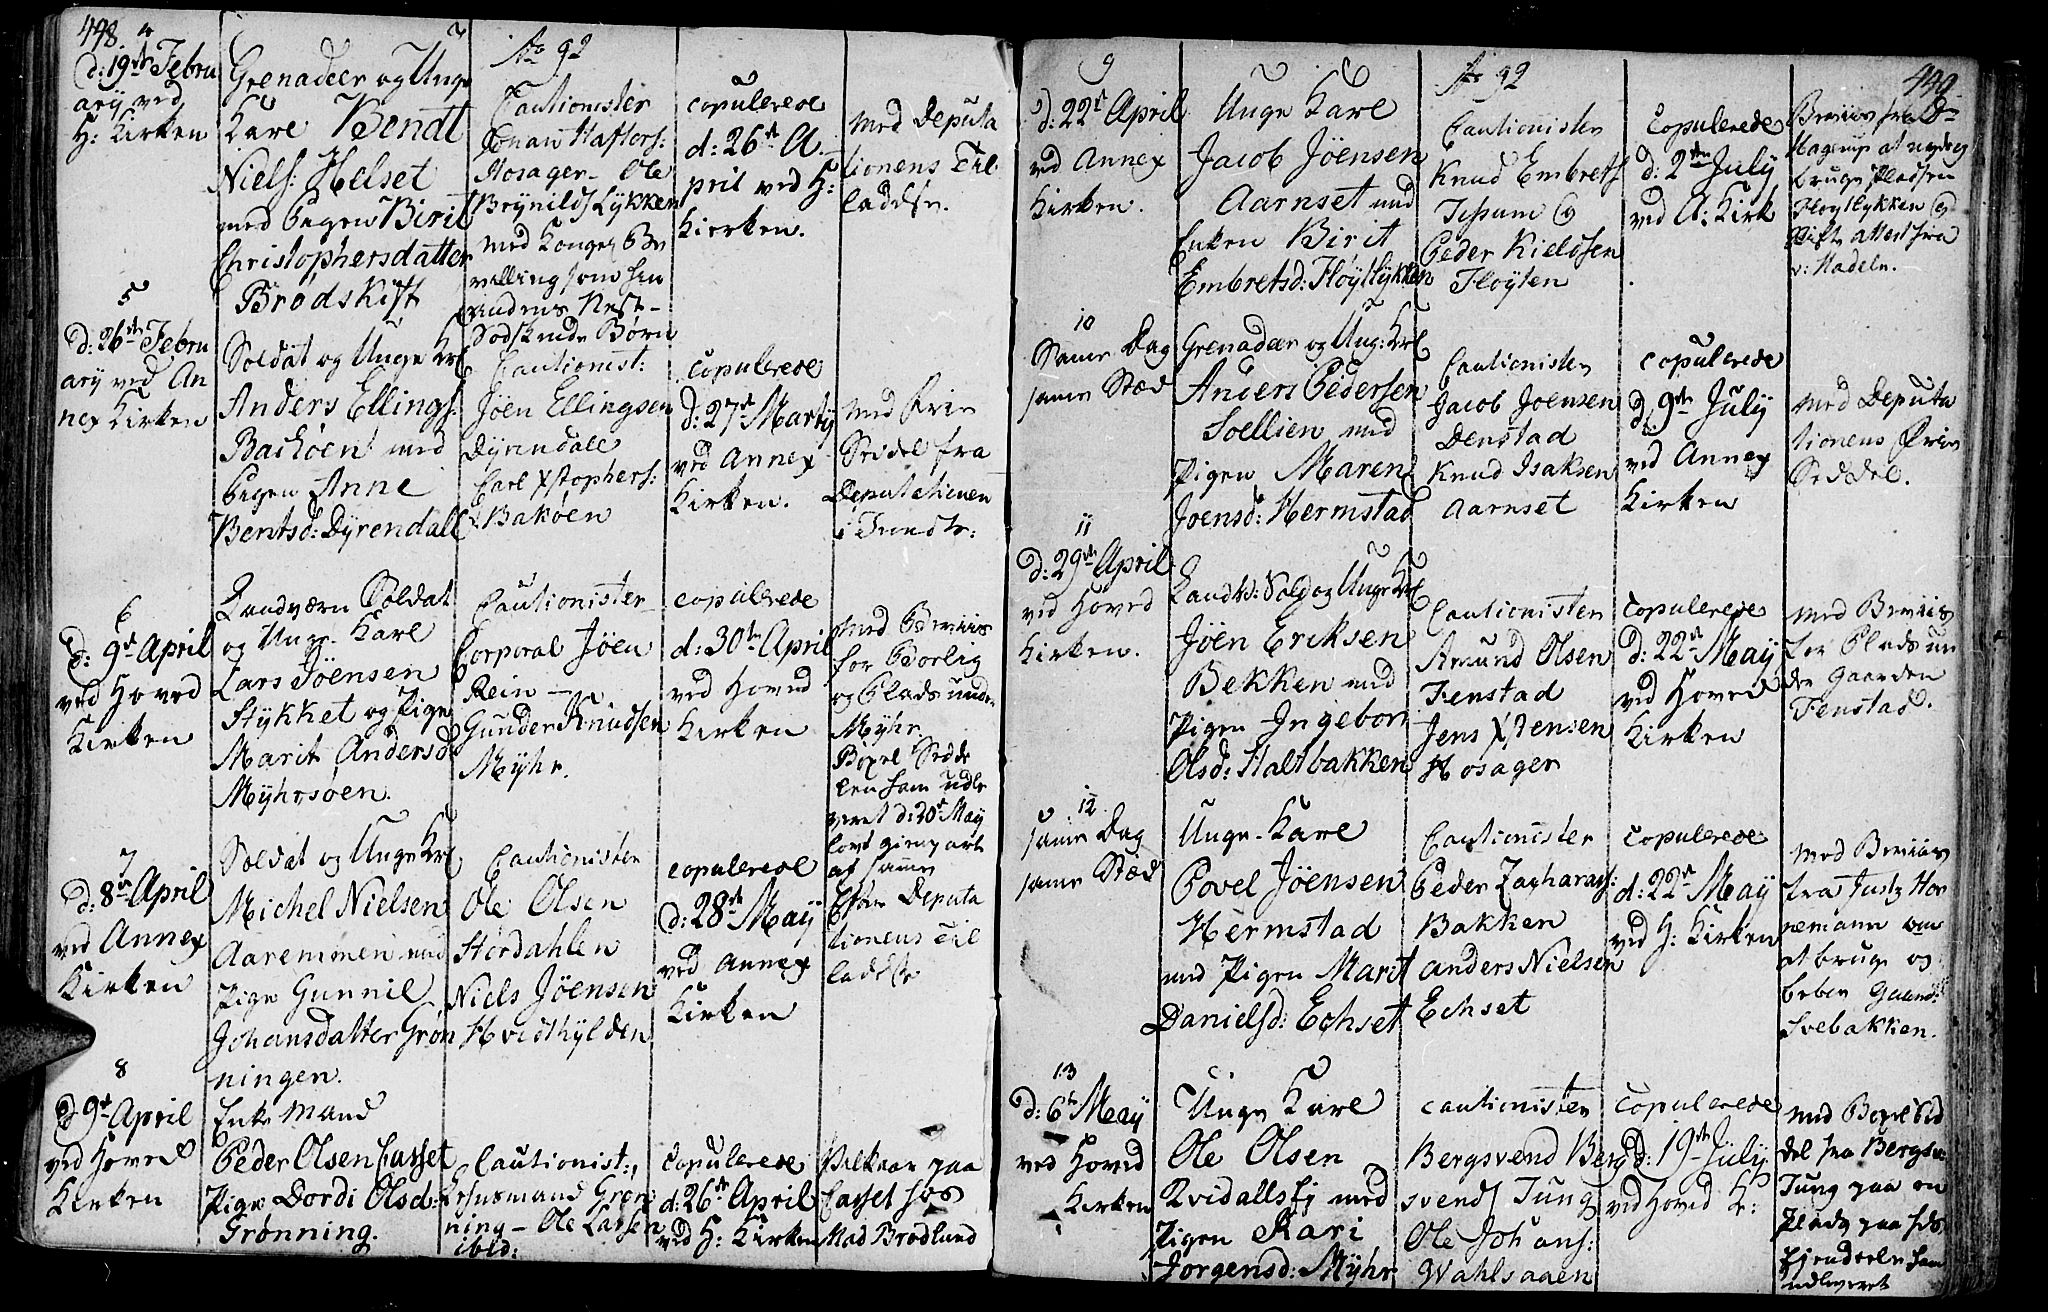 448.
Ao 92
4
d: 19de Febru
ary ved
H: Kirken
Grenadeer og Unge
Karl Bendt
Niels: Helset
med Pigen Birit
Christophersdatter
Brødskift
Cautionister
Jonan Haftors:
Hosager - Ole
Brynilds Lykken
med Konge
villing som
Nest-
Sødskende Børn
copulerede
d: 26de A
pril ved H:
Kierken.
Med Deputa
tionens Til
ladelse.
5
d: 26de Febru
ary ved An
nex Kirken
Soldat og Unge Krl
Anders Ellings:
Bachøen med
Pigen Anne
Bentsd: Dyrendall
Cautionist:
Jöen Ellingsen
Dyrendale
Carl Xstophers:
Bakøen
copulerede
d: 27de Marty
ved Annex
Kirken.
Med Frie
Seddel fra
Deputationen
i Trundh:
6
d: 9de April
ved Hoved
Kirken
Landværn Soldat
og Unge Karl
Lars Jöensen
Stykket og Pige
Marit Andersd
Myhrsøen.
Cautionister
Corporal Jöen
Rein -
Gunder Knudsen
Myhr.
copulerede
d: 30te April
ved Hoved
Kirken
Med Beviis
for Boelig
og Plads under
Myhr.
Boxel Sedde
len som udle
veret d: 20de May
af samme
Efter Deputa
tionens Til
ladelse
7
d: 8de April
ved Annex
Kirken
Soldat og Unge Krl
Michel Nielsen
Aaremmen med
Pige Gunnil
Johansdatter Grøn
ningen.
Cautionister
Ole Olsen
Størdahlen
Niels Jöensen
Hvidthylden
copulerede
d: 28de May
ved Annex
Kirken
8
d 9de April
ved Hoved
Kirken
Enke Mand
Peder Olsen Casset
Pige Dordi Olsd:
Grønning.
Cautionist:
Grøn
ning - Ole Larsen
ibid:
copulerede
d: 26de April
ved H: Kirken
Vilkaar paa
Casset hos
Mad Brodlund
449.
Ao 92
9
d: 22de April
ved Annex
Kirken.
Unge Karl
Jacob Jöensen
Aarnset med
Enken Birit
Embretsd: Fløytlykken
Cautionister
Knud Embrets
Jessum Og
Peder Kieldsen
Fløyten
copulerede
d: 2den July
ved A: Kirk
Beviis fra Hr
Hagerup at
bruge Pladsen
Fløytlykken og
Skifte attest fra
v: Hadeln.
10
Same Dag
same Stæd
Grenadær og Ung: Krl
Anders Pedersen
Soellien med
Pigen Maren
Joensd: Hermstad
Cautionister
Jacob Joensen
Denstad
Knud Isaksen
Aarnset
copulerede
d. 9de July
ved Annex
Kirken
Med Deputa
tionens Frie
Seddel.
11
d: 29de April
ved Hoved
Kirken.
Landv: Sold og Unge Krl
Jöen Eriksen
Bekken med
Pigen Ingebor
Olsd: Haltbakken
Cautionister
Amund Olsen
Fenstad
Jens X Jensen
Hosager
copulerede
d: 22de May
ved Hoved
Kirken
Med Beviis
for Plads un
der Gaarden
Fenstad.
12
same Dag
same Stæd
Unge Karl
Povel Jöensen
Hermstad
med Pigen Marit
Danielsd: Echset
Cautionister
Peder Zacharas:
Bakken
Anders Nielsen
Echset
copulerede
d: 22de May
ved H: Kirken
Med Beviis
fra Justz Hor
nemann om
at bruge og
beboe Gaard:
Svebakken.
13
d: 6te May
ved Hoved
Kirken
Unge Karl
Ole Olsen
Qvidallsej med
Pigen Kari
Jorgensd: Myhr
Cautionister
Bergsvend Berg
svends Tung
Ole Johans:
Wahlsaaen
copulerede
d: 19de July
ved Hoved K:
med Boxel Sed
del fra Bergsv:
Tung paa en
Plads paa hds
Ejendeele som
udleveret